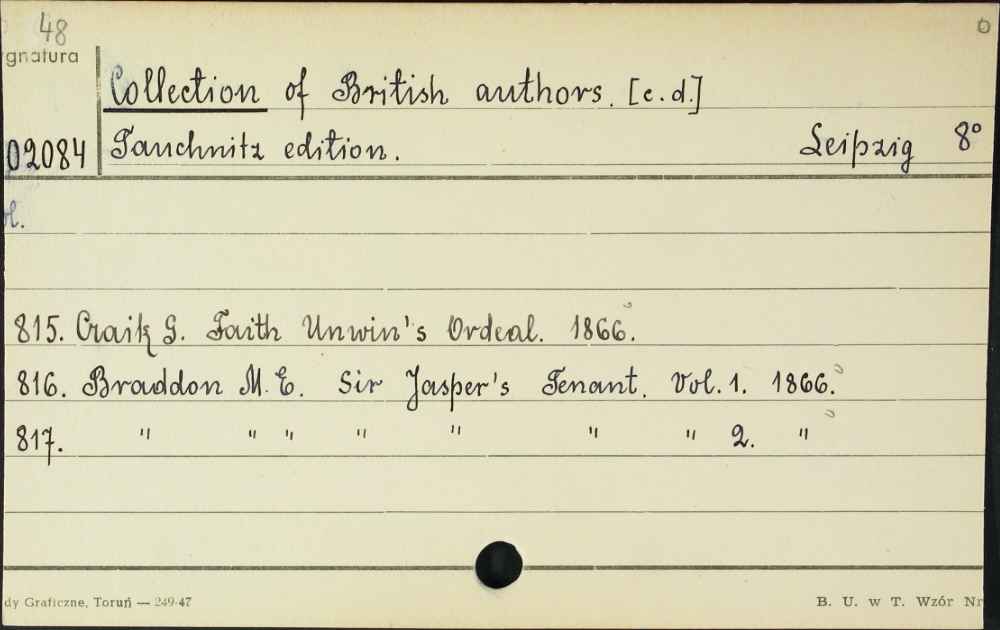 48
gnatura
Collection of British authors. [c.d.]
02084 Tauchnitz edition. Leipzig 8°
ol.
815. Craik G. Faith Unwin's Ordeal. 1866.
816. Braddon M. E. Sir Jasper's Tenant. Vol. 1. 1866.
817. " " " " " " " 2. "
dy Graficzne, Toruń — 249-47 B. U. w T. Wzór Nr